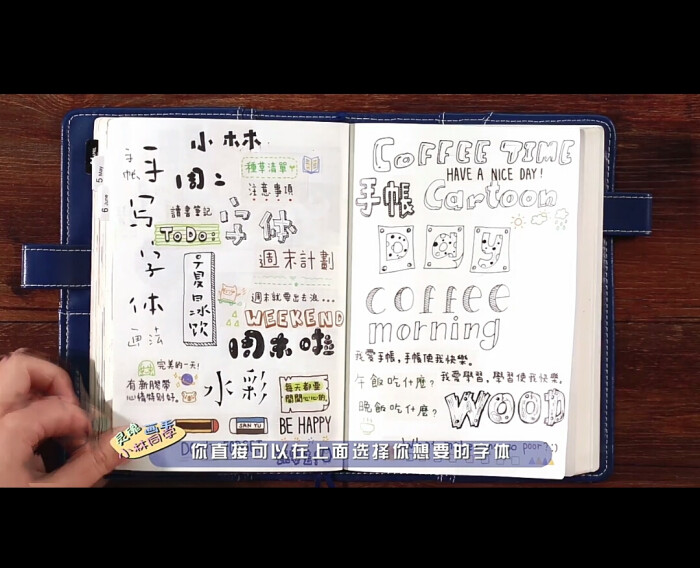 小林
手帳
手写字体
画法
周二
種草清單
注意事項
讀書筆記
TODO:
字体
夏日冰饮
週末計劃
週末就要出去浪...
WEEKEND
周末啦
完美的一天!
有新膠帶
心情特別好。
水彩
每天都要
開開心心的
SAN YU
BE HAPPY
5 May
6 June
COFFEE TIME
HAVE A NICE DAY!
手帳
Cartoon
Day
coffee
morning
我愛手帳,手帳使我快樂。
午飯吃什麼?
我愛學習,學習使我快樂。
晚飯吃什麼?
WOOD
poor!:)
小林同學
你直接可以在上面选择你想要的字体